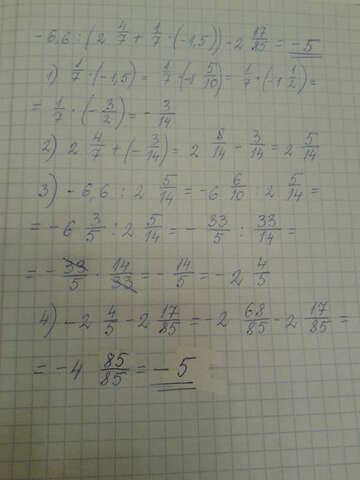 -6,6 : (2 4/7 + 1/7 · (-1,5)) - 2 17/85 = -5
1) 1/7 · (-1,5) = 1/7 · (-1 5/10) = 1/7 · (-1 1/2) =
= 1/7 · (-3/2) = - 3/14
2) 2 4/7 + (-3/14) = 2 8/14 - 3/14 = 2 5/14
3) -6,6 : 2 5/14 = -6 6/10 : 2 5/14 =
= -6 3/5 : 2 5/14 = - 33/5 : 33/14 =
= - 33/5 · 14/33 = - 14/5 = -2 4/5
4) -2 4/5 - 2 17/85 = -2 68/85 - 2 17/85 =
= -4 85/85 = -5